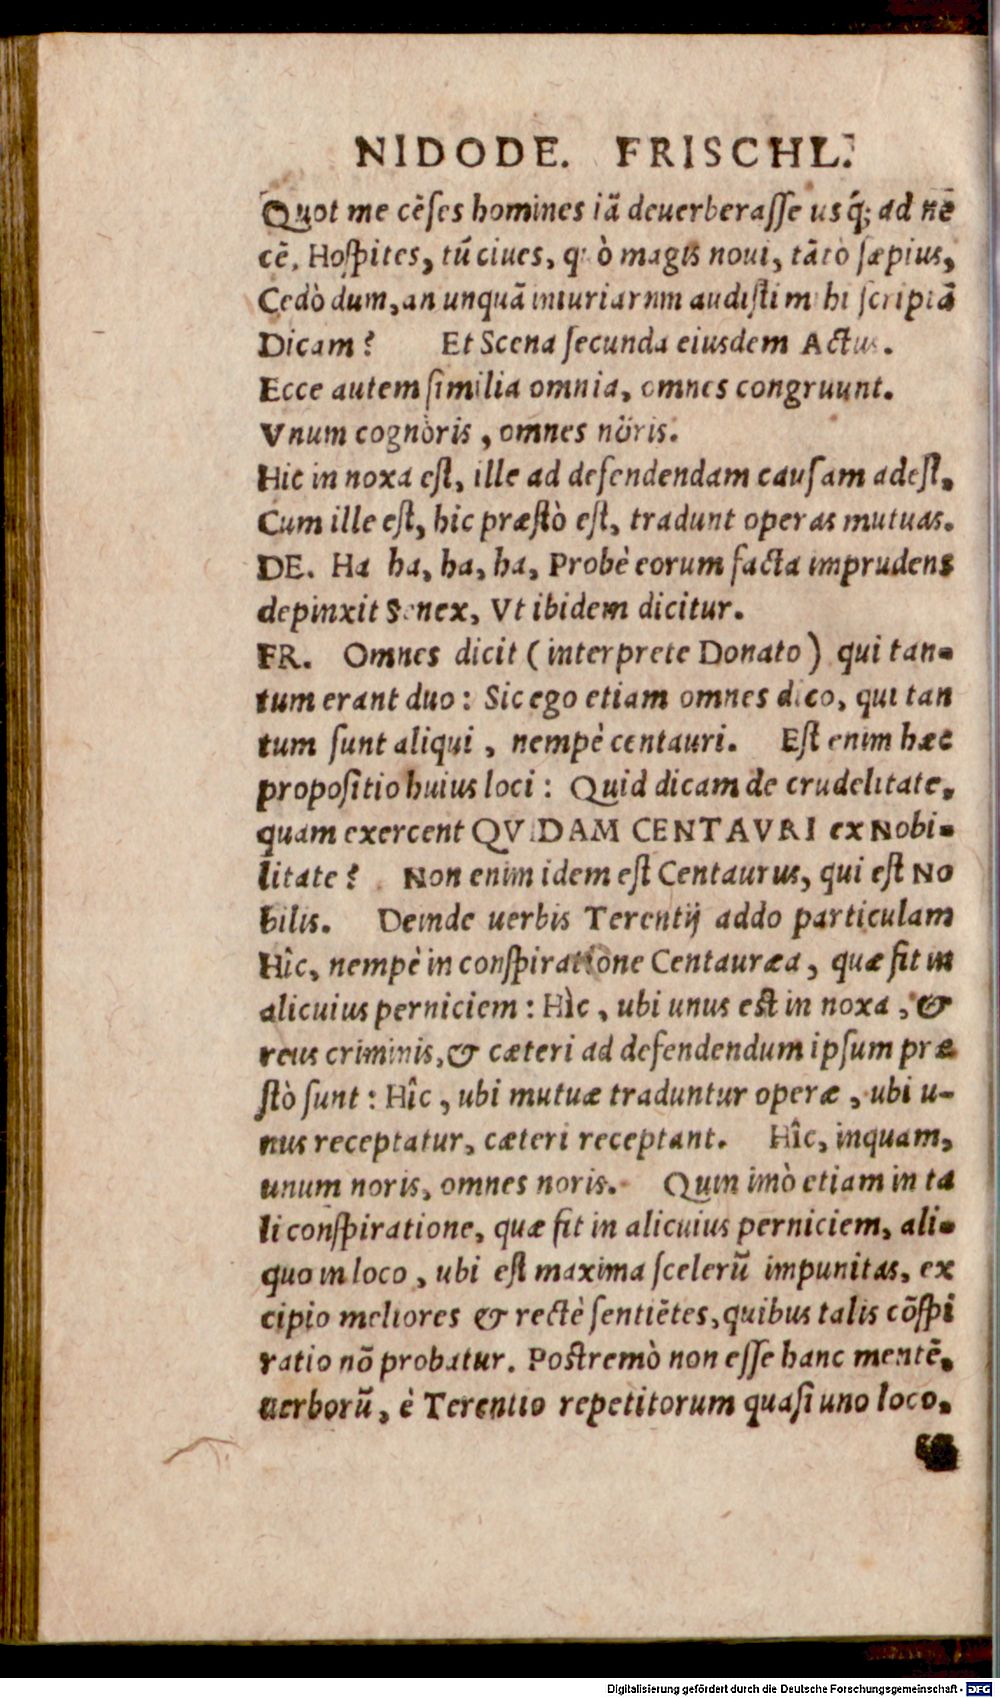 NIDODE. FRISCHL.
Quot me cẽſes homines iã deuerberaſſe usq́; ad nẽ
cẽ, Hoſpites, tũ ciues, quò magis noui, tãtò ſæpius,
Cedò dum, an unquã iniuriarum audiſti mihi ſcriptã
Dicam? Et Scena ſecunda eiusdem Actus.
Ecce autem ſimilia omnia, omnes congruunt.
Vnum cognòris, omnes nôris.
Hic in noxa eſt, ille ad defendendam cauſam adeſt,
Cum ille eſt, hic præſtò eſt, tradunt operas mutuas.
DE. Ha ha, ha, ha, Probè eorum facta imprudens
depinxit Senex, Vt ibidem dicitur.
FR. Omnes dicit (interprete Donato) qui tan-
tum erant duo: Sic ego etiam omnes dico, qui tan
tum ſunt aliqui, nempè centauri. Eſt enim hæc
propoſitio huius loci: Quid dicam de crudelitate,
quam exercent QVIDAM CENTAVRI ex Nobi-
litate? Non enim idem eſt Centaurus, qui eſt No
bilis. Deinde uerbis Terentij addo particulam
Hîc, nempè in conſpiratione Centauræa, quæ fit in
alicuius perniciem: Hìc, ubi unus est in noxa, &
reus criminis, & cæteri ad defendendum ipſum præ
ſtò ſunt: Hîc, ubi mutuæ traduntur operæ, ubi u-
nus receptatur, cæteri receptant. Hîc, inquam,
unum noris, omnes noris. Quin imò etiam in ta
li conſpiratione, quæ fit in alicuius perniciem, ali-
quo in loco, ubi eſt maxima ſcelerũ impunitas, ex
cipio meliores & rectè ſentiẽtes, quibus talis cõſpi
ratio nõ probatur. Postremò non eſſe hanc mentẽ,
uerborũ, è Terentio repetitorum quaſi uno loco,
Digitalisierung gefördert durch die Deutsche Forschungsgemeinschaft - DFG